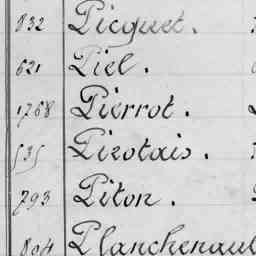 832 Picquet.
621 Piel.
1768 Pierrot.
535 Pizotais.
793 Piton.
804 Planchenaul